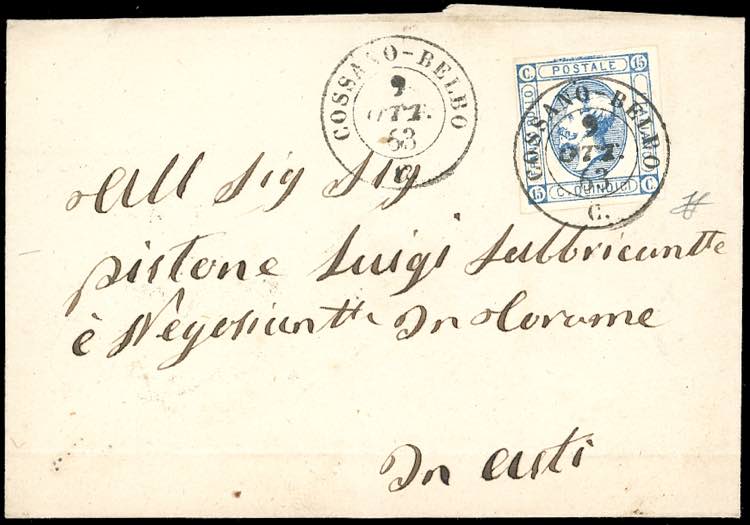 COSSANO-BELBO
9
OTT.
63
C.
C. POSTALE 15
BOLLO
15 C. QUINDICI C.
COSSANO-BELBO
9
OTT.
63
C.
All Sig Sig
pistone Luigi Fabbricantte
è Negosiantte In Corame
In Asti